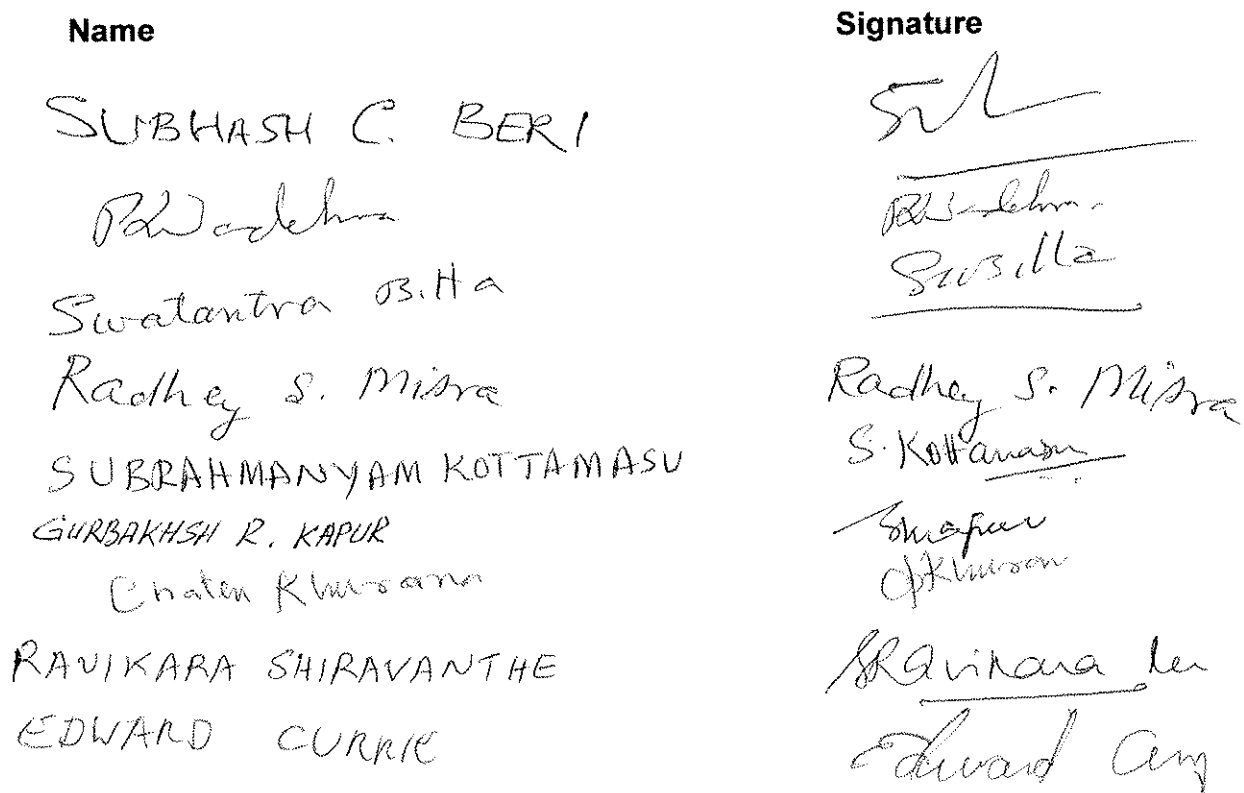 Name Signature
SUBHASH C. BERI
PK Wadehra PK Wadehra
Swatantra Bitta SwBitta
Radhey S. Misra Radhey S. Misra
SUBRAHMANYAM KOTTAMASU S. Kottamasu
GURBAKHSH R. KAPUR
Chaten Khurana
RAVIKARA SHIRAVANTHE SRavikara
EDWARD CURRIE Edward